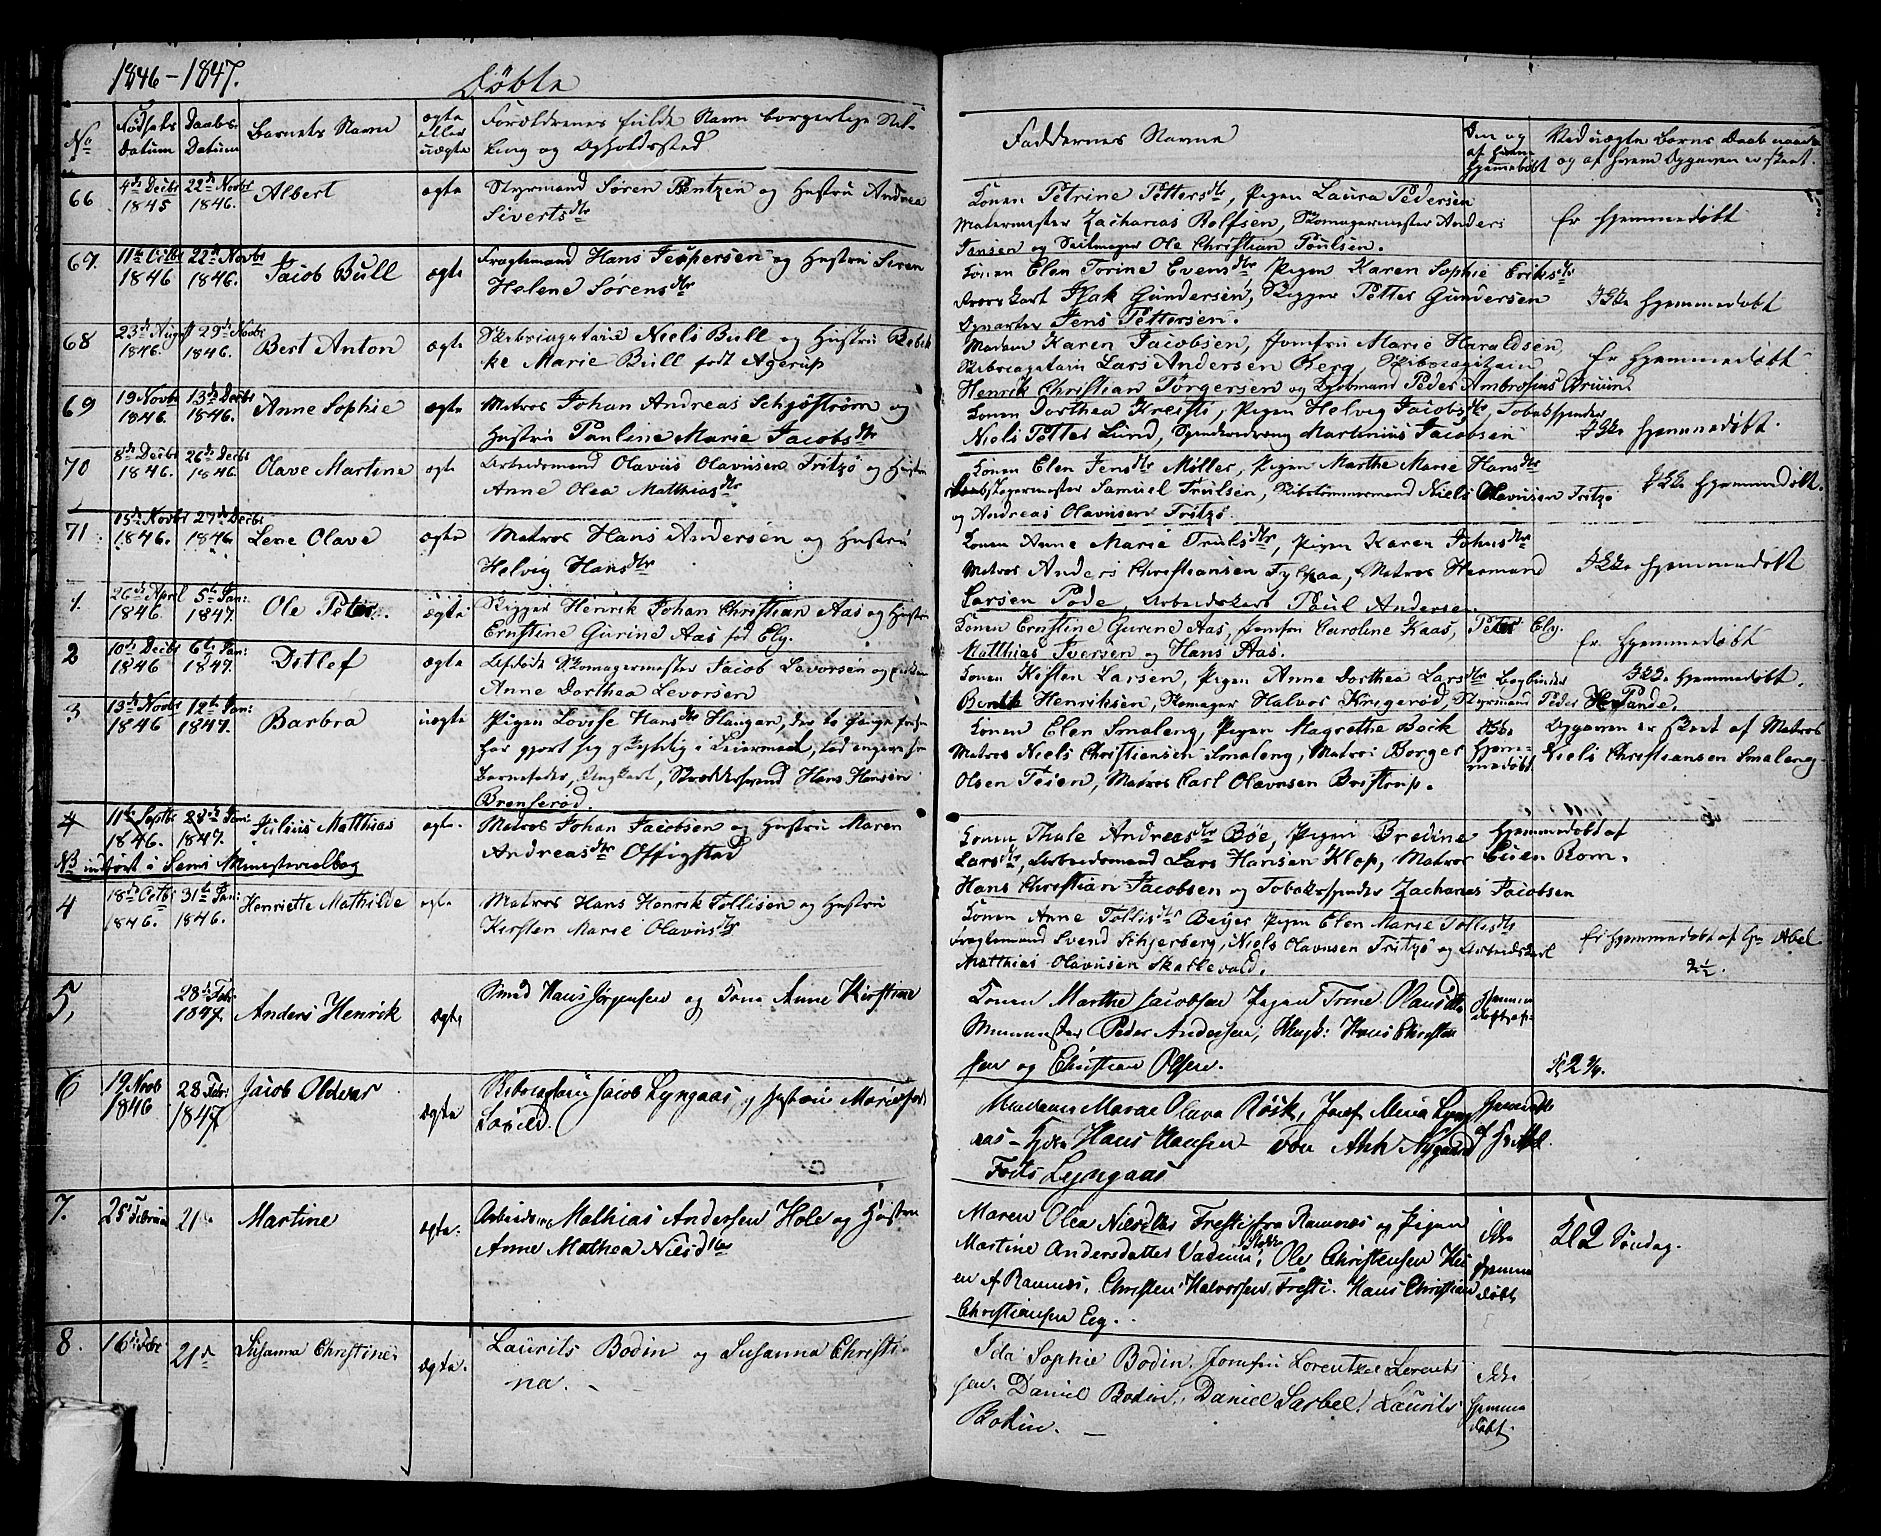 1846-1847.
Döbte
No
Födsels Datum
Daabs Datum
Barnets Navn
ægte eller uægte
Forældrenes fulde Navn borgerlige Stilling og Opholdssted
Faddernes Navne
Om og af hvem hjemmedøbt
Ved uægte Børns Daab
og af hvem Opgaven er skeet.
66
4de Decbr 1845
22de Novbr 1846.
Albert
ægte
Styrmand Sören Bentzen og Hustru Andrea
Sivertsdtr
Konen Petrine Pettersdtr, Pigen Laura Pedersen
Matermester Zacharias Rolfsen, Skomagermester Anders
Jansen og Seilmager Ole Christian Poulsen.
Er hjemmedøbt
67.
11te Octbr 1846
22de Novbr 1846.
Jacob Bull
ægte
Fragtemand Hans Jespersen og Hustru Siren
Helene Sörensdtr
Konen Elen Torine Evensdtr, Pigen Karen Sophie Eriksdtr
Isak Gundersen, Skipper Petter Gundersen
Jens Pettersen.
Ikke hjemmedøbt
68
23de Augst 1846.
29de Novbr 1846.
Bert Anton
ægte
Skibscapitain Niels Bull og Hustru Rebek
ke Marie Bull født Agerup
Madam Karen Jacobsen, Jomfru Marie Haraldsen,
Skibscapitain Lars Andersen Berg, Skibscapitain
Henrik Christian Törgersen og Dykmand Peder Ambrosius Bruun.
Er hjemmedøbt
69
19 Novbr 1846.
13de Decbr 1846.
Anne Sophie
ægte
Matros Johan Andreas Schjöström og
Hustru Pauline Marie Jacobsdtr
Konen Dorthea Kresti, Pigen Helvig Jacobsdtr, Tobakspinder
Niels Petter Lund, Spinderdreng Martinius Jacobsen
Ikke hjemmedøbt.
70
8de Decbr 1846.
26de Decbr 1846.
Olave Martine
ægte
Arbeidsmand Olavus Olavusen Fritzö og Hustru
Anne Olea Matthiasdtr
Konen Elen Jensdtr Möller, Pigen Marthe Marie Hansdtr
Samuel Trulsen, Skibstømmermand Niels Olavusen Fritzö
og Andreas Olavusen Fritzö.
Ikke hjemmedøbt.
71
15de Novbr 1846.
27de Decbr 1846.
Lene Olave
ægte
Matros Hans Andersen og Hustru
Helvig Hansdtr
Konen Anne Marie Trulsdtr, Pigen Karen Johnsdtr
Matros Anders Christiansen, Matros Herman
Larsen Pode, Arbeidskarl Paul Andersen.
Ikke hjemmedøbt
1.
26de April 1846
5te Jan: 1847.
Ole Peter.
ægte
Skipper Henrik Johan Christian Aas og Hustru
Ernstine Gurine Aas fød Ely.
Konen Ernstine Gurine Aas, Jomfru Caroline Kaas, Peter Ely.
Matthias Iversen og Hans Aas.
Er hjemmedøbt
2
10de Decbr 1846
6te Jan: 1847.
Ditlef
ægte
Afdöde Skomagermester Jacob Levorsen og Enken
Anne Dorthea Levorsen
Konen Kisten Larsen, Pigen Anne Dorthea Larsdtr Bogbinder
Bentik Henriksen, Skomager Halvor Krigeröd, Styrmand Peder Pande.
Ikke hjemmedøbt.
3
13de Novbr 1846
12te Jan: 1847.
Barbra
uægte
Pigen Lovise Hansdtr Haugan, der to Gange før
har gjort sig skyldig i Leiermaal, Udlægger som
Barnefader, Ungkarl, Skræddersvend Hans Hansen
Brenseröd.
Konen Elen Smaleng, Pigen Magrethe Beck
Matros Niels Christiansen Smaleng, Matros Borger
Olsen Teien, Matros Carl Olavusen Bristrup.
Ikke hjemmedøbt
Opgaven er skeet af Matros
Niels Christiansen Smaleng
4
11te Septbr 1846.
23de Jan: 1847.
Julius Matthias
ægte.
Matros Johan Jacobsen og Hustru Maren
Andreasdtr Offigstad
NB indført i Sems Ministerialbog
Konen Thale Andreasdtr Böe, Pigen Bredine
Larsdtr, Arbeidsmand Lars Hansen Klop, Matros
Hans Christian Jacobsen og Tobakspinder Zacharias Jacobsen
Hjemmedøbt af
Eien Rom.
4
18de Octbr 1846.
31te Jan: 1846.
Henriette Mathilde
ægte
Matros Hans Henrik Tollisen og Hustru
Kirsten Marie Olavusdtr
Konen Anne Tollisdtr Beyer Pigen Elen Marie Tollisdtr
Fragtemand Svend Schjerberg, Niels Olavusen Fritzö og Arbeidskarl
Matthias Olavusen Skallevold.
Er hjemmedøbt af Hr Abel
2½.
5,
28de Febr 1847.
Anders Henrik
ægte
Smed Hans Jörgensen og Kone Anne Kirstine
Konen Marthe Jacobsen Pigen Trine Olausdtr
Murermester Peder Andersen, Hans Christian
sen og Christian Olsen.
6
19 Novb 1846
28 Febr 1847
Jacob Oldeus
ægte
Skibscaptein Jacob Lyngaas, og Hustru Marie født
Madam Marae Olava Rösk, Josef Alexia Lyng
aas - Hans Hansen - Tov Anh Nygaard
Forts Lyngaas
Hjemmedøbt
af Hr Abel
7.
25 Februar
21
Martine
ægte.
Arbeidsm Mathias Andersen Hole og Hustru
Anne Mathea Nilsdtr
Maren Olea Nilsdtr Fresti fra Ramnæs og Pigen
Martine Andersdatter, Ole Christensen Hei
en af Ramnæs, Christen Halvorsen Fresti. Hans Christian
Christiansen Eeg.
ikke hjemmedøbt
Kl 2 Söndag.
8.
16de Febr
21de
Susanna Christine
ægte.
Laurits Bodin og Susanna Christi-
na. -
Ida Sophie Bodin, Jomfru Lorentze Lorent
sen. Daniel Bodin, Daniel Sarbel, Laurits
Bodin. -
ikke hjemmedøbt